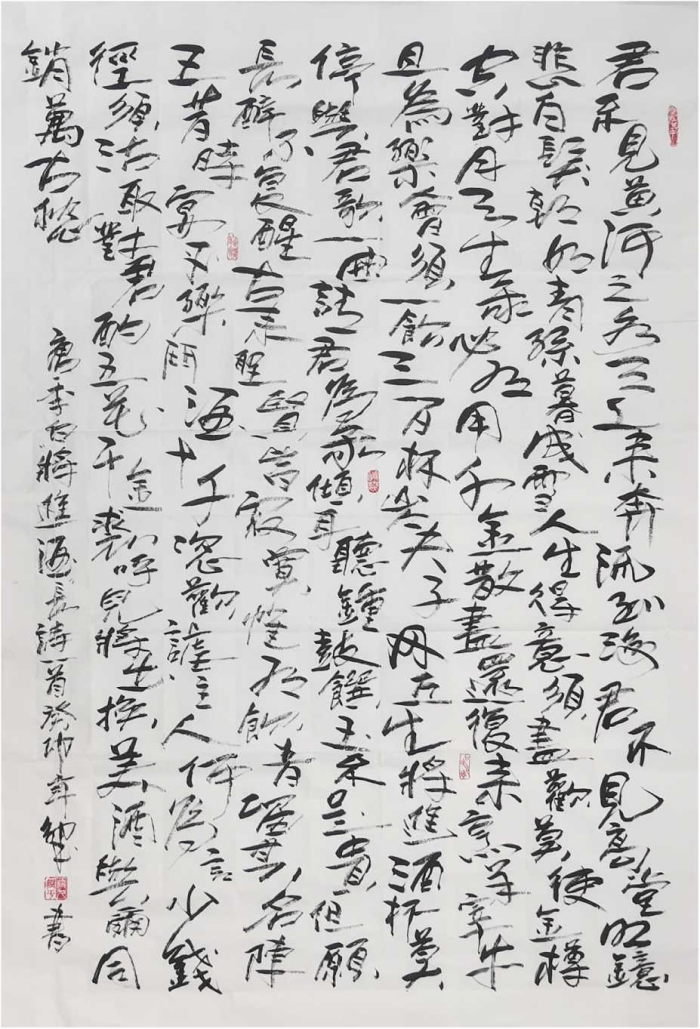 君不見黃河之水天上來奔流到海君不見高堂明鏡
悲白髮朝如青絲暮成雪人生得意須盡歡莫使金樽
空對月天生我必有用千金散盡還復來烹羊宰牛
且為樂會須一飲三百杯岑夫子丹丘生將進酒杯莫
停與君歌一曲請君為我傾耳聽鐘鼓饌玉不足貴但願
長醉不復醒古來聖賢皆寂寞惟有飲者留其名陳
王昔時宴平樂鬥酒十千恣歡謔主人何為言少錢
徑須沽取對君酌五花千金裘呼兒將出換美酒與爾同
銷萬古愁
唐李白將進酒長詩一首癸卯年書